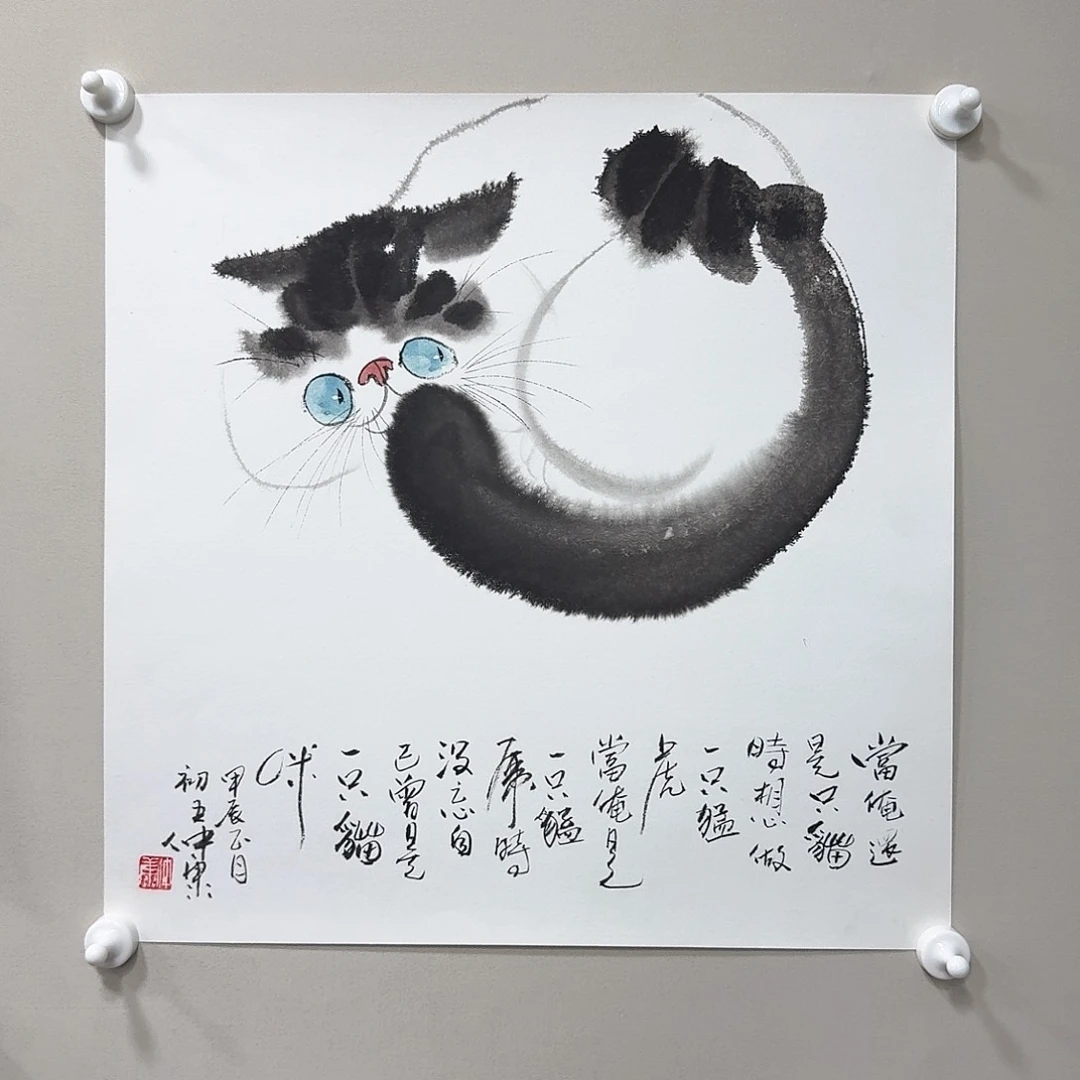 當俺還
是只貓
時想做
一只猛
虎
當俺是
一只猛
虎時
没忘自
己曾是
一只貓
咪
甲辰正月
初五